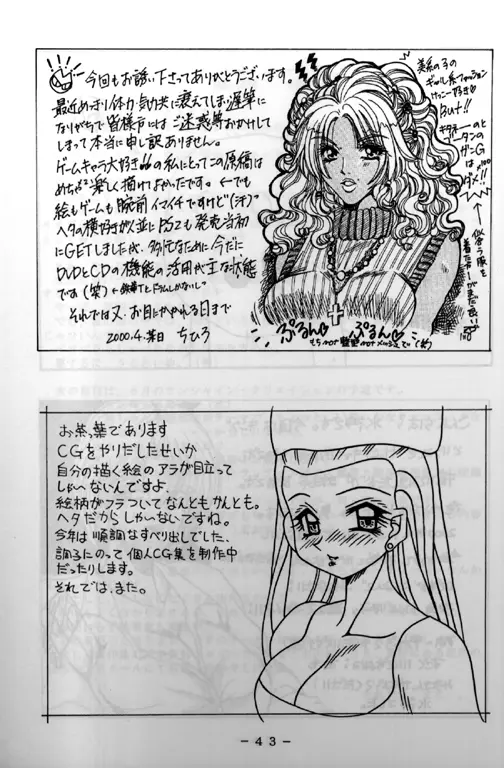 今回もお誘い下さってありがとうございます。
最近めっきり体力・気力共に衰えてしまい遅筆に
なりがちで皆様方にはご迷惑等おかけして
しまって本当に申し訳ありません。
ゲームキャラ大好きの私にとってこの原稿は
めちゃ楽しく描けてよかったです。←でも
絵もゲームも腕前イマイチですけど(汗)
ヘタの横好きが人並にPS2も発売当初
にGETしましたが、多忙なために今だに
DVDとCDの機能の活用が主な状態
です(笑)
それでは又、お目にかかれる日まで
2000.4.某日 ちひろ
美系の子の
ギャル系ファッション
けっこー好き♡
But!!
ボータンの
ガーG
は
ダメ!!
似合う服を
着た方がまだ良い
ぷるん♡
ぷるん♡
お茶葉であります
CGをやりだしたせいか
自分の描く絵のアラが目立って
しゃ〜ないんですよ
絵柄がフラついてなんともかんとも。
ヘタだからしゃ〜ないですね。
今年は順調なすべり出しでした、
調子にのって個人CG集を制作中
だったりします。
それでは、また。
－43－